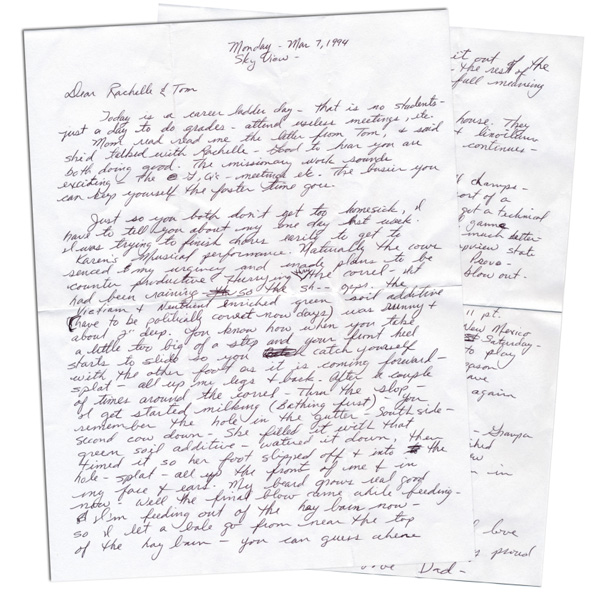 Monday - Mar 7, 1994
Sky View -
Dear Rachelle & Tom
Today is a career ladder day - that is no students -
just a day to do grades - attend useless meetings, etc.
Mom read me the letter from Tom, & said
she'd talked with Rachelle - Good to hear you are
both doing good. The missionary work sounds
exciting - the G, G's - meetings etc. The busier you
can keep yourself the faster time goes.
Just so you both don't get too homesick, I
have to tell you about my one day last week.
I was trying to finish chores early to get to
Karen's Musical performance. Naturally the cows
sensed my urgency and made plans to be
counter productive. Hurrying the correl - it
had been raining so the sh-- oops, the
Vitamin & Nutrient enriched green soil additive
(have to be politically correct now days) was runny &
about 2" deep. You know how when you take
a little too big of a step and your front heel
starts to slide so you catch yourself
with the other foot as it is coming forward -
splat - all up my legs & back. After a couple
of times around the correl - thru the slop -
I got started milking (Bathing first) - you
remember the hole in the gutter - South side -
second cow down - She filled it with that
green soil additive - watered it down, then
timed it so her foot slipped off & into the
hole - splat - all up the front of me & in
my face & ears. My beard grows real good
now. Well the final blow came while feeding -
I'm feeding out of the hay barn now -
so I let a bale go from near the top
of the hay barn - you can guess where
it out of the
the rest of the
full meaning
house. They
continues -
champs -
sort of a
get a technical
game
much better
state
Provo -
blow out.
11 pt.
New Mexico
Saturday -
to play
season
again
Grandpa
new
in
love
proud
Love Dad -